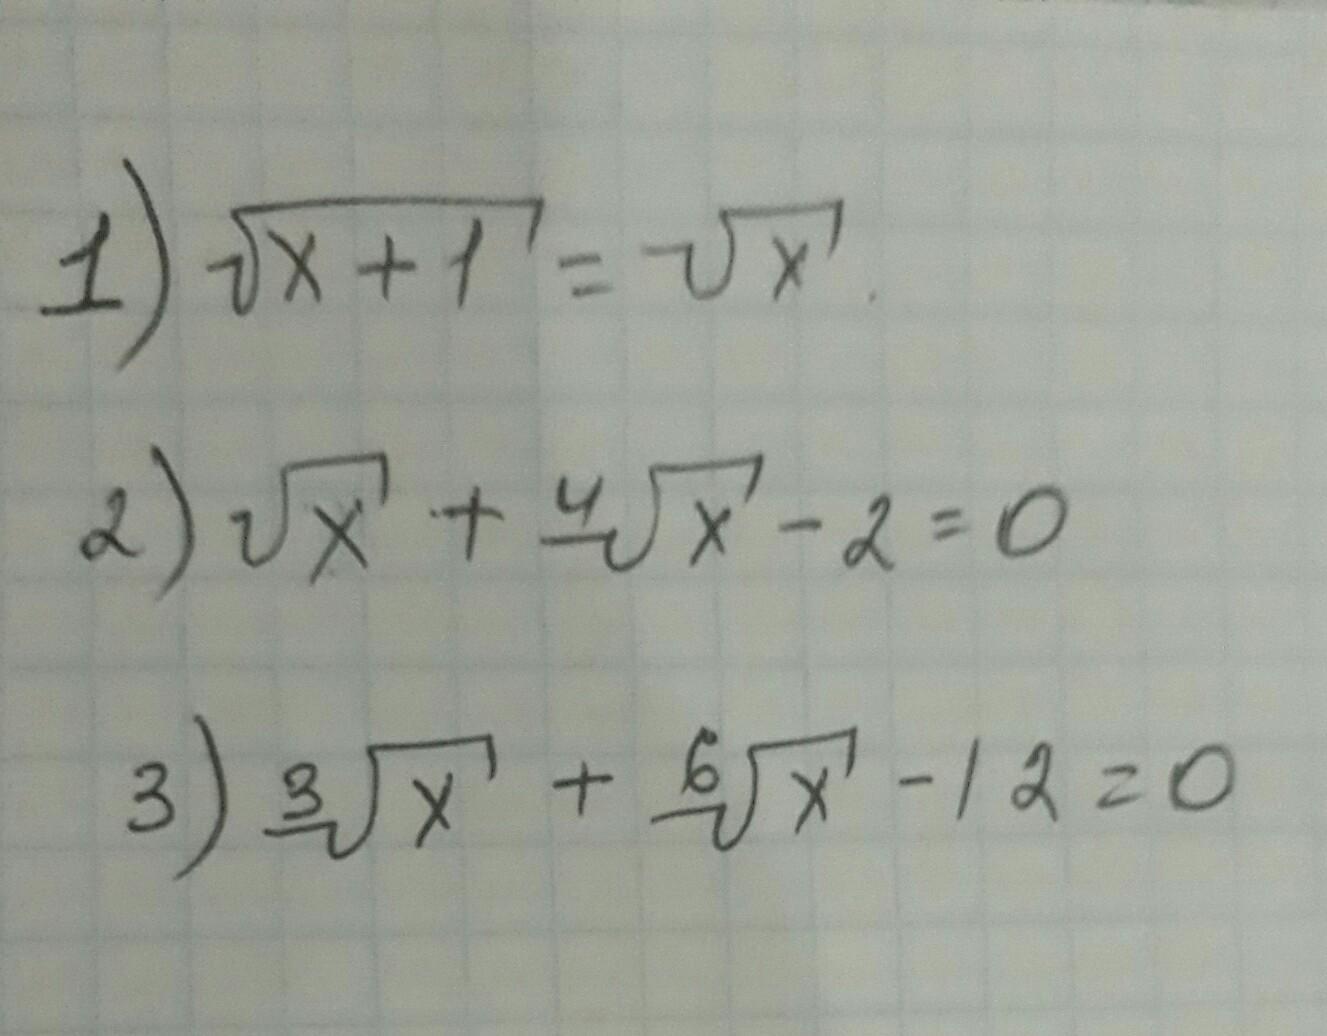 1) √(x+1) = √x.
2) √x + ⁴√x - 2 = 0
3) ³√x + ⁶√x - 12 = 0